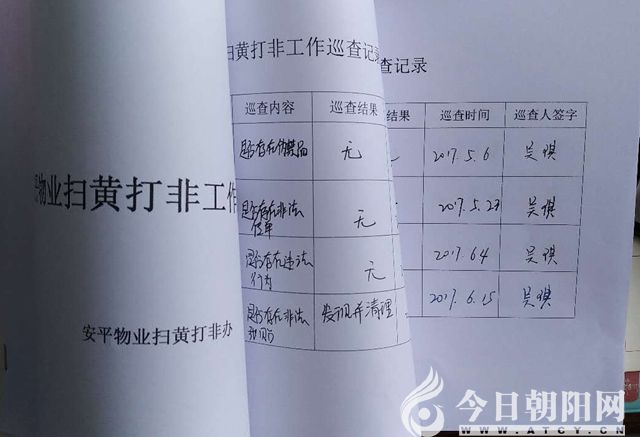 物业扫黄打非工作
安平物业扫黄打非办
扫黄打非工作巡查记录
巡查内容 巡查结果
无
是否存在非法 无
是否存在违法 无
行为
是否存在非法 发现并清理
查记录
结果 巡查时间 巡查人签字
2017.5.6 吴琪
2017.5.23 吴琪
2017.6.4 吴琪
2017.6.15 吴琪
今日朝阳网
WWW.ATCY.CN